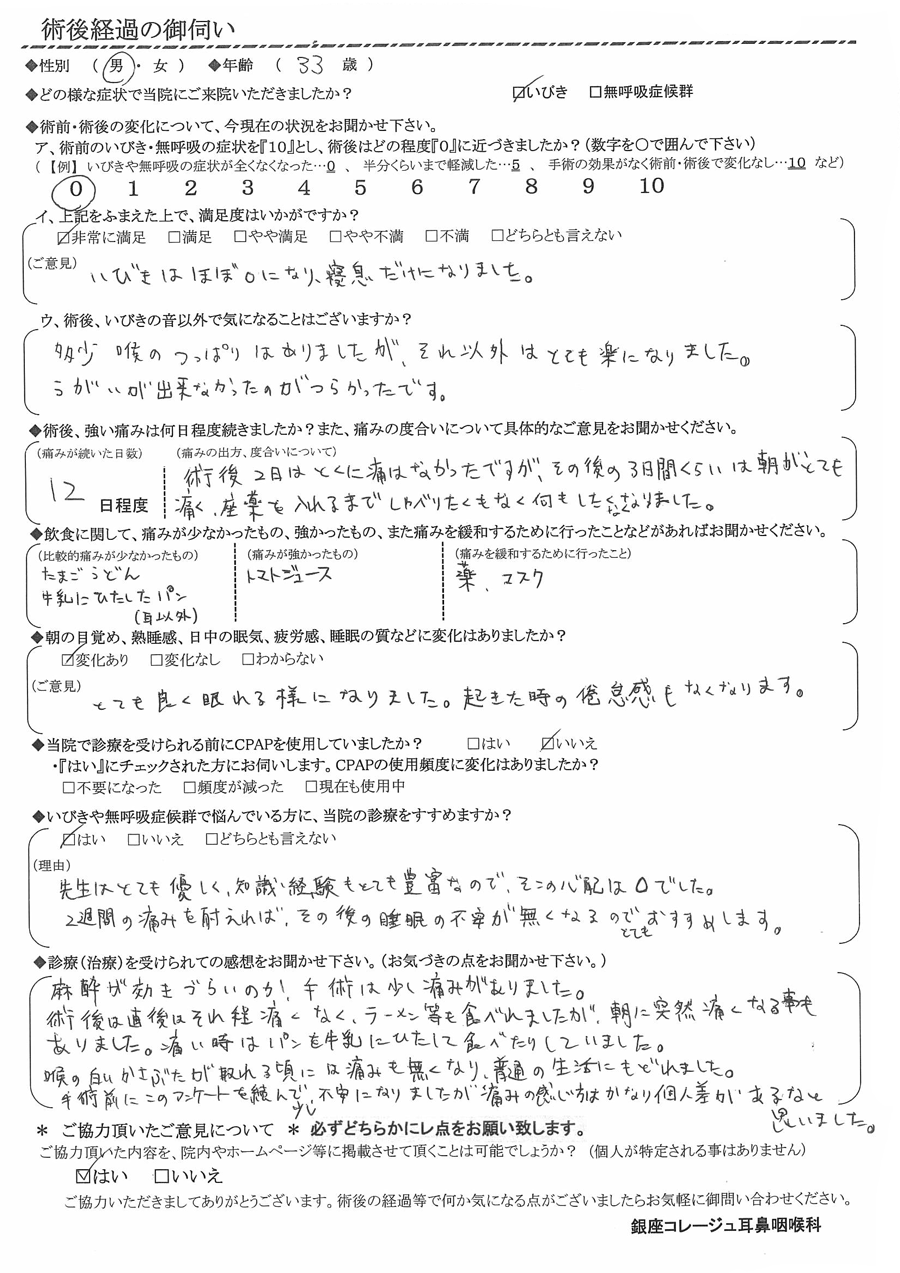 術後経過の御伺い
◆性別 ( 男 ・ 女 ) ◆年齢 ( 33 歳 )
◆どの様な症状で当院にご来院いただきましたか? ☑いびき □無呼吸症候群
◆術前・術後の変化について、今現在の状況をお聞かせ下さい。
ア、術前のいびき・無呼吸の症状を『10』とし、術後はどの程度『0』に近づきましたか?(数字を〇で囲んで下さい)
(【例】いびきや無呼吸の症状が全くなくなった…0 、 半分くらいまで軽減した…5 、 手術の効果がなく術前・術後で変化なし…10 など)
0 1 2 3 4 5 6 7 8 9 10
イ、上記をふまえた上で、満足度はいかがですか?
☑非常に満足 □満足 □やや満足 □やや不満 □不満 □どちらとも言えない
(ご意見)
いびきはほぼ0になり、寝息だけになりました。
ウ、術後、いびきの音以外で気になることはございますか?
多少 喉のつっぱりはありましたが、それ以外はとても楽になりました。
うがいが出来なかったのがつらかったです。
◆術後、強い痛みは何日程度続きましたか?また、痛みの度合いについて具体的なご意見をお聞かせください。
(痛みが続いた日数) (痛みの出方、度合いについて)
12 日程度
術後2日はとくに痛はなかったですが、その後の3日間くらいは朝がとても
痛く、座薬を入れるまでしゃべりたくもなく何もしたくなくなりました。
◆飲食に関して、痛みが少なかったもの、強かったもの、また痛みを緩和するために行ったことなどがあればお聞かせください。
(比較的痛みが少なかったもの) (痛みが強かったもの) (痛みを緩和するために行ったこと)
たまごうどん トマトジュース 薬、マスク
牛乳にひたしたパン
(耳以外)
◆朝の目覚め、熟睡感、日中の眠気、疲労感、睡眠の質などに変化はありましたか?
☑変化あり □変化なし □わからない
(ご意見)
とても良く眠れる様になりました。起きた時の倦怠感もなくなります。
◆当院で診療を受けられる前にCPAPを使用していましたか? □はい ☑いいえ
・『はい』にチェックされた方にお伺いします。CPAPの使用頻度に変化はありましたか?
□不要になった □頻度が減った □現在も使用中
◆いびきや無呼吸症候群で悩んでいる方に、当院の診療をすすめますか?
☑はい □いいえ □どちらとも言えない
(理由)
先生はとても優しく、知識、経験もとても豊富なので、そこの心配は0でした。
2週間の痛みを耐えれば、その後の睡眠の不安が無くなるのでとてもおすすめします。
◆診療(治療)を受けられての感想をお聞かせ下さい。(お気づきの点をお聞かせ下さい。)
麻酔が効きづらいのか、手術は少し痛みがありました。
術後は直後はそれ程痛くなく、ラーメン等も食べれましたが、朝に突然痛くなる事も
ありました。痛い時はパンを牛乳にひたして食べたりしていました。
喉の白いかさぶたが取れる頃には痛みも無くなり、普通の生活にもどれました。
手術前にこのアンケートを読んで、少し不安になりましたが痛みの感じ方はかなり個人差があるなと
思いました。
* ご協力頂いたご意見について * 必ずどちらかにレ点をお願い致します。
ご協力頂いた内容を、院内やホームページ等に掲載させて頂くことは可能でしょうか? (個人が特定される事はありません)
☑はい □いいえ
ご協力いただきましてありがとうございます。術後の経過等で何か気になる点がございましたらお気軽に御問い合わせください。
銀座コレージュ耳鼻咽喉科